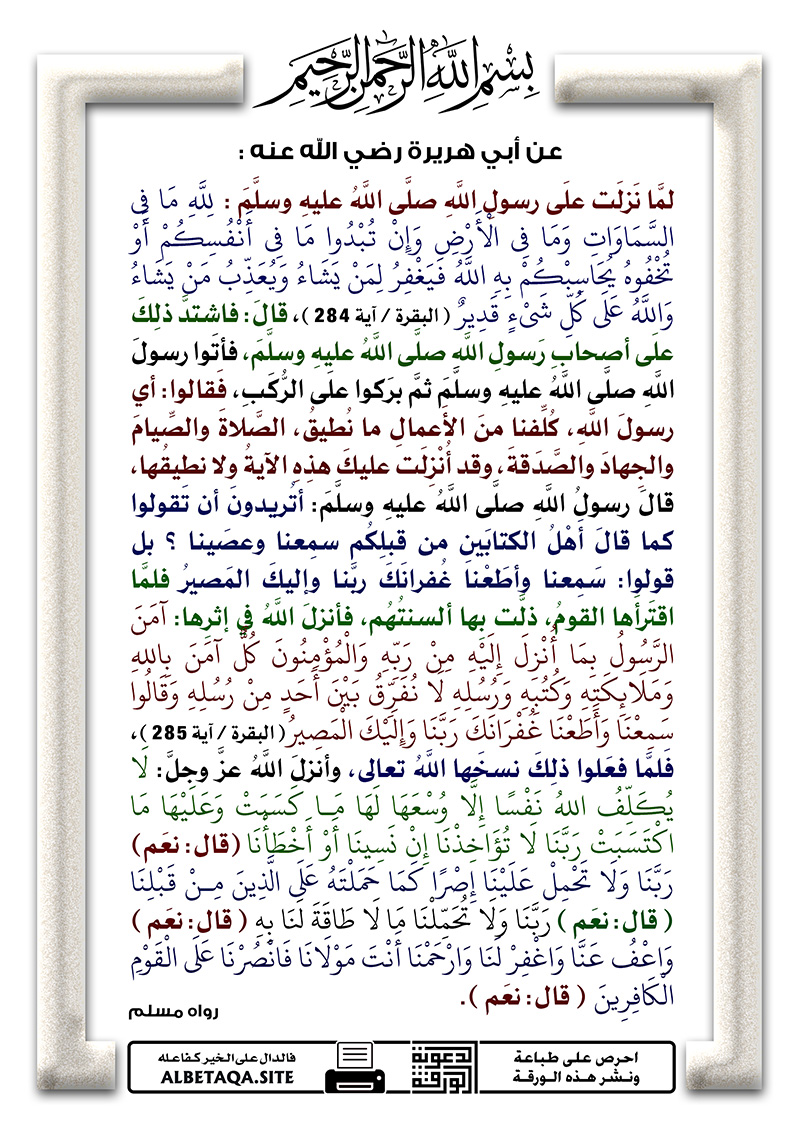 بِسْمِ اللَّهِ الرَّحْمَنِ الرَّحِيمِ
عن أبي هريرة رضي الله عنه :
لمَّا نَزلَت علَى رسولِ اللَّهِ صلَّى اللَّهُ عليهِ وسلَّمَ : لِلَّهِ مَا فِي
السَّمَاوَاتِ وَمَا فِي الْأَرْضِ وَإِنْ تُبْدُوا مَا فِي أَنْفُسِكُمْ أَوْ
تُخْفُوهُ يُحَاسِبْكُمْ بِهِ اللَّهُ فَيَغْفِرُ لِمَنْ يَشَاءُ وَيُعَذِّبُ مَنْ يَشَاءُ
وَاللَّهُ عَلَى كُلِّ شَيْءٍ قَدِيرٌ ( البقرة / آية 284 )، قالَ: فاشتدَّ ذلِكَ
علَى أصحابِ رَسولِ اللَّهِ صلَّى اللَّهُ عليهِ وسلَّمَ، فأتَوا رسولَ
اللَّهِ صلَّى اللَّهُ عليهِ وسلَّمَ ثمَّ برَكوا علَى الرُّكَبِ، فَقالوا: أي
رسولَ اللَّهِ، كُلِّفنا منَ الأعمالِ ما نُطيقُ، الصَّلاةَ والصِّيامَ
والجِهادَ والصَّدَقةَ، وقد أُنْزِلَت عليكَ هذِهِ الآيةُ ولا نطيقُها،
قالَ رسولُ اللَّهِ صلَّى اللَّهُ عليهِ وسلَّمَ: أتُريدونَ أن تَقولوا
كما قالَ أَهْلُ الكتابَينِ من قبلِكُم سمِعنا وعصَينا ؟ بل
قولوا: سَمِعنا وأطَعْنا غُفرانَكَ ربَّنا وإليكَ المَصيرُ فلمَّا
اقتَرأَها القومُ، ذلَّت بِها ألسنتُهُم، فأنزلَ اللَّهُ في إثرِها: آمَنَ
الرَّسُولُ بِمَا أُنْزِلَ إِلَيْهِ مِنْ رَبِّهِ وَالْمُؤْمِنُونَ كُلٌّ آمَنَ بِاللهِ
وَمَلَائِكَتِهِ وَكُتُبِهِ وَرُسُلِهِ لَا نُفَرِّقُ بَيْنَ أَحَدٍ مِنْ رُسُلِهِ وَقَالُوا
سَمِعْنَا وَأَطَعْنَا غُفْرَانَكَ رَبَّنَا وَإِلَيْكَ الْمَصِيرُ ( البقرة / آية 285 )،
فَلمَّا فعَلوا ذلِكَ نسخَها اللَّهُ تعالى، وأنزلَ اللَّهُ عزَّ وجلَّ: لَا
يُكَلِّفُ اللهُ نَفْسًا إِلَّا وُسْعَهَا لَهَا مَا كَسَبَتْ وَعَلَيْهَا مَا
اكْتَسَبَتْ رَبَّنَا لَا تُؤَاخِذْنَا إِنْ نَسِينَا أَوْ أَخْطَأْنَا (قال: نعَم)
رَبَّنَا وَلَا تَحْمِلْ عَلَيْنَا إِصْرًا كَمَا حَمَلْتَهُ عَلَى الَّذِينَ مِنْ قَبْلِنَا
( قال: نعَم ) رَبَّنَا وَلَا تُحَمِّلْنَا مَا لَا طَاقَةَ لَنَا بِهِ ( قال: نعَم )
وَاعْفُ عَنَّا وَاغْفِرْ لَنَا وَارْحَمْنَا أَنْتَ مَوْلَانَا فَانْصُرْنَا عَلَى الْقَوْمِ
الْكَافِرِينَ ( قال: نعَم ).
رواه مسلم
احرص على طباعة
ونشر هذه الورقة
الورقة الدعوية
فالدال على الخير كفاعله
ALBETAQA.SITE